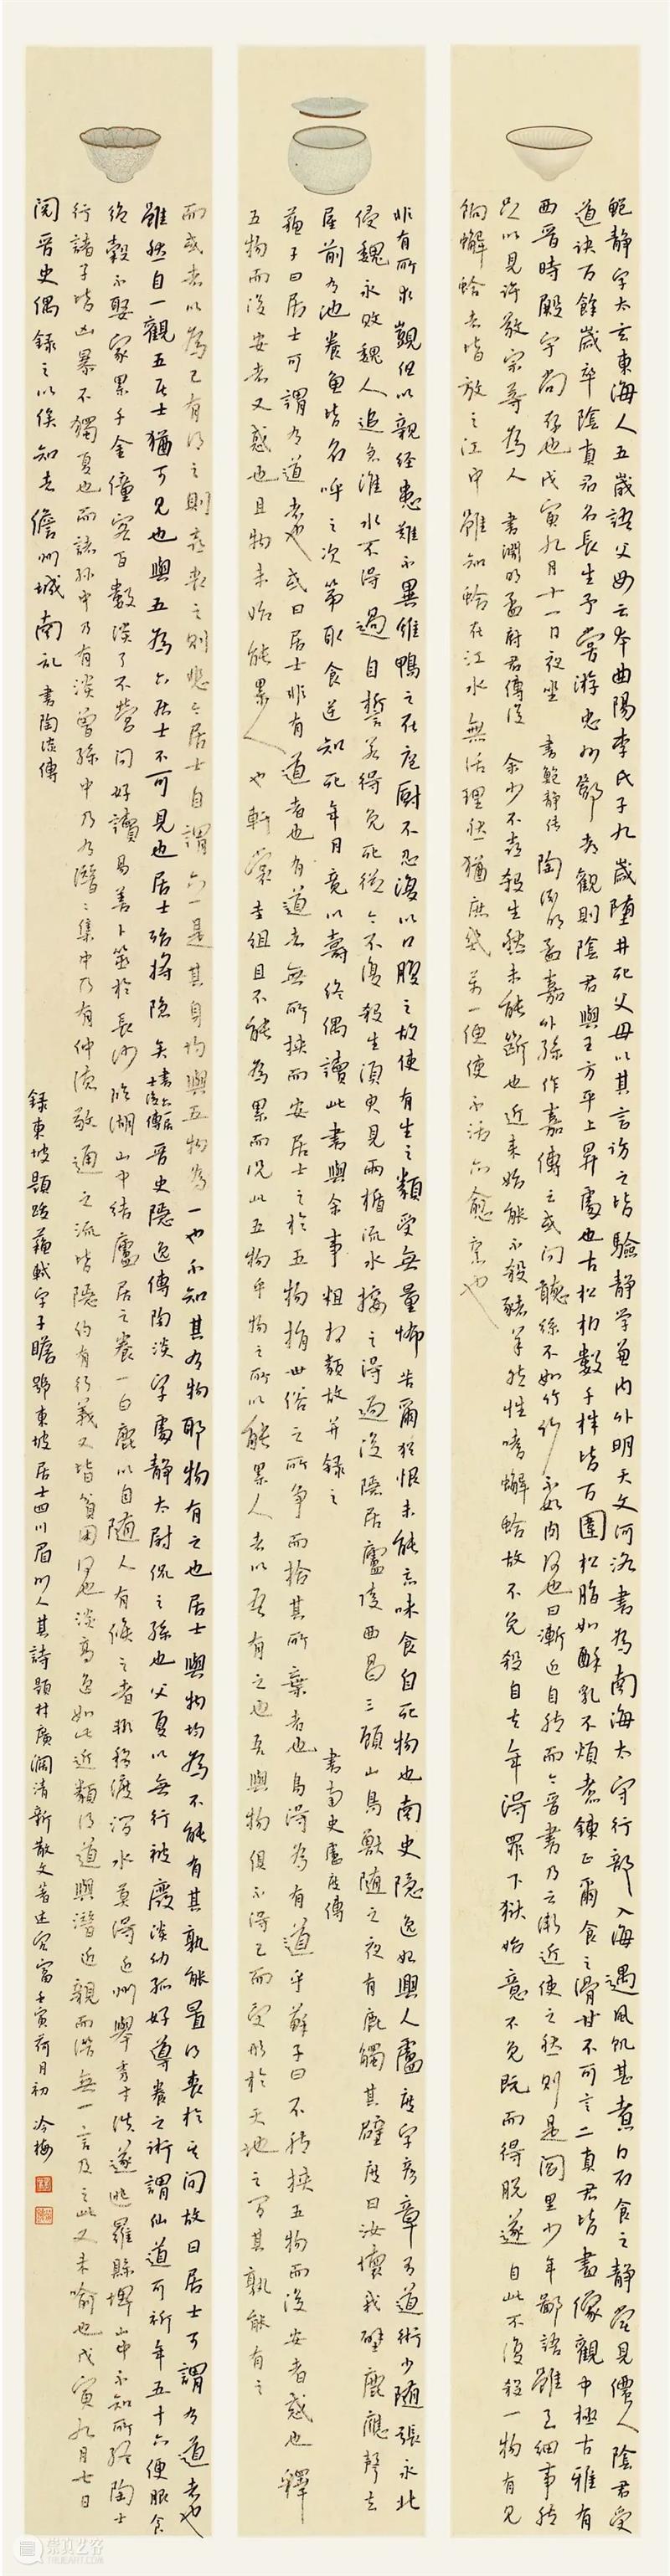 鲍静字太玄東海人五歲語父母云本曲陽李氏子九歲墮井死父母以其言訪之皆驗静学兼内外明天文河洛書為南海太守行部入海遇風飢甚煮白石食之静嘗見僊人陰君受
道訣百餘歲卒陰真君名長生予嘗游忠州酆都觀則陰君與王方平上昇處也古松柏數千株皆百圍松脂如酥乳不煩煮鍊正爾食之滑甘不可言二真君皆畫像觀中極古雅有
西晉時殿宇尚存也戊寅九月十一日夜坐 書鲍静傳 陶淵明孟嘉外孫作嘉傳云或问聽絲不如竹竹不如肉何也曰漸近自然而今晉書乃云漸近使之然則是閭里少年鄙語雖至細事然
足以見許敬宗等為人 書淵明孟府君傳後 余少不喜殺生然未能斷也近来始能不殺豬羊然性嗜蠏蛤故不免殺自去年得罪下獄始意不免既而得脱遂自此不復殺一物有见
餉蠏蛤者皆放之江中雖知蛤在江水無活理然猶庶幾萬一便使不活亦愈烹也
非有所求覬但以親經患難不異雞鴨之在庖厨不忍復以口腹之故使有生之類受無量怖苦爾猶恨未能忘味食自死物也南史隱逸始興人盧度字彦章有道術少随張永北
侵魏永敗魏人追急淮水不得過自誓若得免死從今不復殺生須臾見兩楯流水接之得過後隱居廬陵西昌三顧山鳥獸随之夜有鹿觸其壁度曰汝壞我壁鹿應聲去
屋前有池養魚皆名呼之次第取食逆知死年月竟以壽終偶讀此書與余事粗相類故并録之 書南史盧度傳
蘇子曰居士可謂有道者也或曰居士非有道者也有道者無所挾而安居士之於五物捐世俗之所爭而拾其所棄者也烏得為有道乎蘇子曰不然挾五物而後安者惑也釋
五物而後安者又惑也且物未始能累人也軒裳圭組且不能為累而况此五物乎物之所以能累人者以吾有之也吾與物俱不得已而受形於天地之間其孰能有之
而或者以為己有得之則喜喪之則悲今居士自謂六一是其身均與五物為一也不知其有物耶物有之也居士與物均為不能有其孰能置得喪於其间故曰居士可謂有道者也
雖然自一觀五居士猶可見也與五為六居士不可見也居士殆將隐矣 書六一居士傳後 晉史隱逸傳陶淡字處静太尉侃之孫也父夏以無行被廢淡幼孤好導養之術謂仙道可祈年五十六便服食
絶穀不娶家累千金僮客百數淡了不營问好讀易善卜筮於長沙臨湖山中结廬居之養一白鹿以自随人有候之者輒移渡澗水莫得近州舉秀才淡遂逃羅縣埤山中不知所終陶士
行諸子皆凶暴不獨夏也而諸孫中乃有淡曾孫中乃有潛潛集中乃有仲德敬通之流皆隱约有行義又皆貧困何也淡高逸如此近類得道與潛近親而潛無一言及之此又未喻也戊寅九月七日
閱晉史偶録之以俟知者儋州城南記 書陶淡傳
録東坡題跋蘇軾字子瞻號東坡居士四川眉州人其詩題材廣濶清新散文著述宏富壬寅荷月初 冷梅
崇真艺客